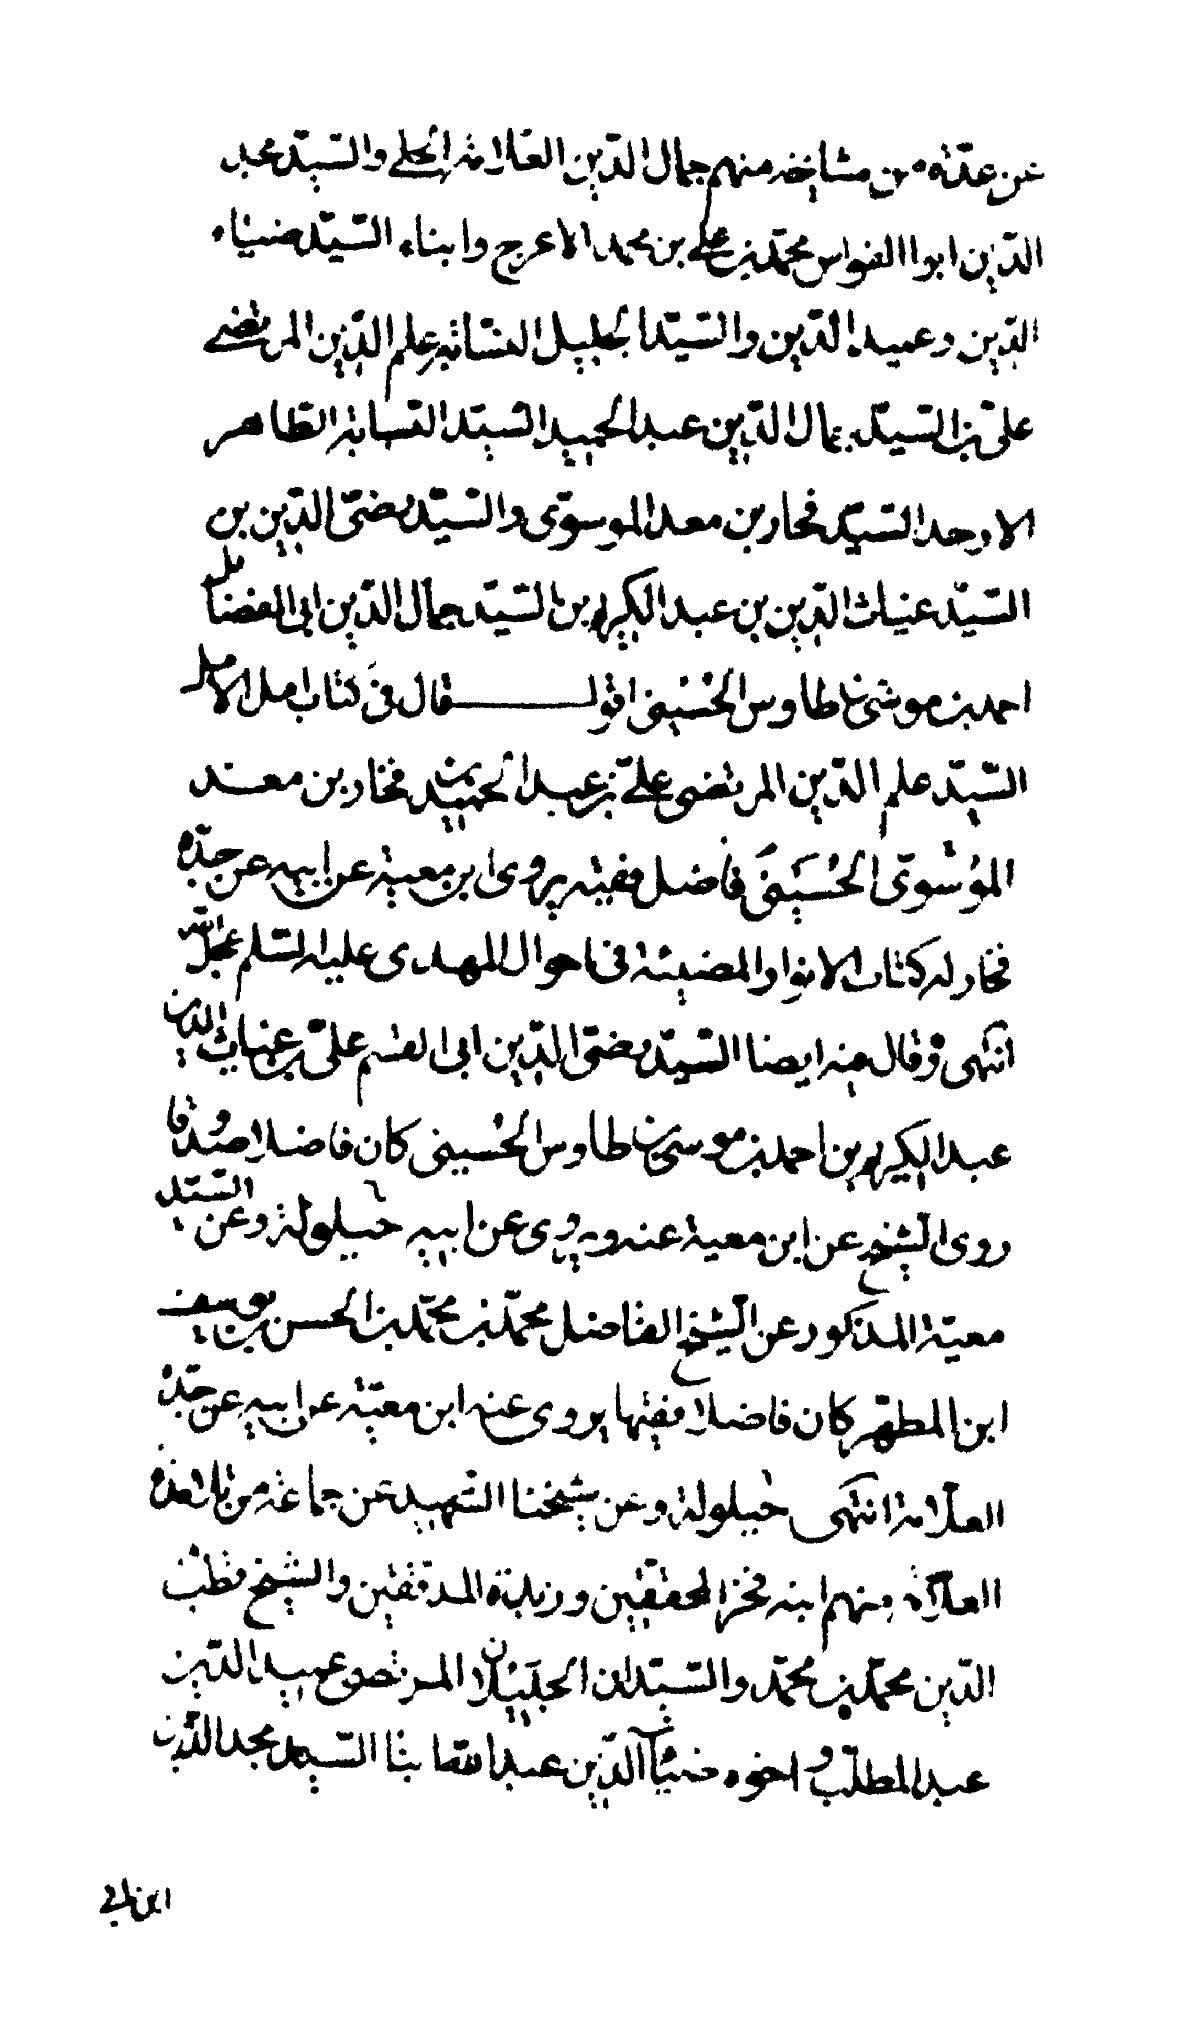 عن عدّة من مشايخه منهم جمال الدّين العلامة الحلي والسّيّد مجد
الدّين ابوا الفوارس محمّد بن علي بن محمد الاعرج وابناء السّيّد ضياء
الدّين وعميد الدّين والسّيّد الجليل النسّابة علم الدّين المرتضى
علىّ بن السيّد جمال الدّين عبد الحميد السّيّد النسابة الطّاهر
الاوحد السّيّد فخار بن معد الموسوّى والسّيّد رضىّ الدّين بن
السّيّد غياث الدّين بن عبد الكريم بن السّيّد جمال الدّين ابى الفضايل
احمد بن موسى بن طاوس الحُسَينى اقول قال فى كتاب امل الامل
السّيّد علم الدّين المرتضى علىّ بن عبد الحميد بن فخار بن معد
المُوسَوىّ الحُسَينى فاضل فقيه يروى ابن معية عن ابيه عن جدّه
فخار له كتاب الانوار المضيئة فى احوال المهدى عليه السّلم عجل اللّه
انتهى وقال فيه ايضا السّيّد رضىّ الدّين ابى القسم علىّ بن غياث الدين
عبد الكريم بن احمد بن موسى بن طاوس الحُسينى كان فاضلا صدُوقا
روى الشيخ عن ابن معية عنه ويروى عن ابيه حيلولة وعن السّيّد
معيّة المذكور عن الشيخ الفاضل محمّد بن محمّد بن الحسن بن يوسف
ابن المطهّر كان فاضلا فقيها يروى عنه ابن معيّة عن ابيه عن جدّه
العلّامة انتهى حيلولة وعن شيخنا الشّهيد عن جماعة من تلامذة
العلّامة منهم ابنه فخر المحققين وزبدة المدقّقين والشيخ قطب
الدّين محمّد بن محمّد والسّيّدان الجليلان المرتضى عميد الدّين
عبد المطلّب واخوه ضياء الدّين عبد اللّه ابنا السّيد مجد الدّين
ابن ابي